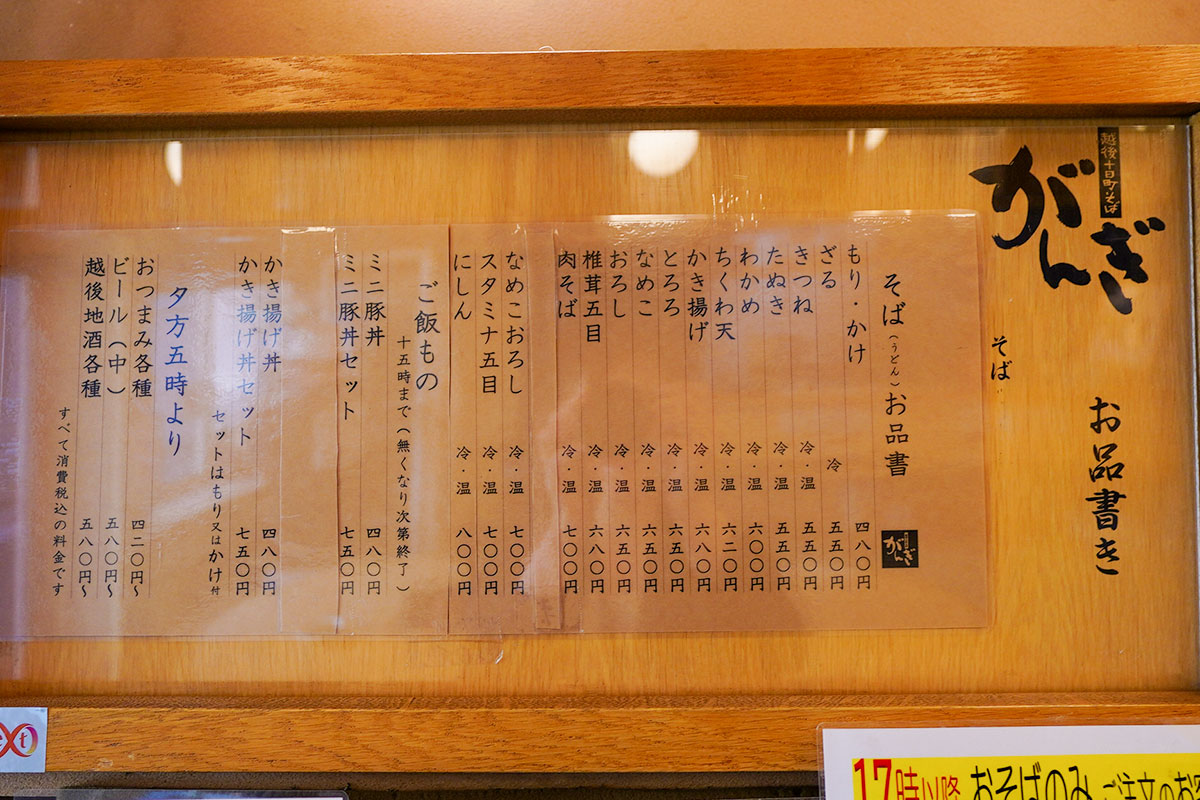 越後十日町そば
がんぎ
お品書き
そば
そば(うどん)お品書
がんぎ
もり・かけ 四八〇円
ざる 冷 五五〇円
きつね 冷・温 五五〇円
たぬき 冷・温 五五〇円
わかめ 冷・温 六〇〇円
ちくわ天 冷・温 六二〇円
かき揚げ 冷・温 六八〇円
とろろ 冷・温 六五〇円
なめこ 冷・温 六五〇円
おろし 冷・温 六五〇円
椎茸五目 冷・温 六八〇円
肉そば 冷・温 七〇〇円
なめこおろし 冷・温 七〇〇円
スタミナ五目 冷・温 七〇〇円
にしん 冷・温 八〇〇円
ご飯もの
十五時まで(無くなり次第終了)
ミニ豚丼 四八〇円
ミニ豚丼セット 七五〇円
かき揚げ丼 四八〇円
かき揚げ丼セット 七五〇円
セットはもり又はかけ付
夕方五時より
おつまみ各種 四二〇円〜
ビール(中) 五八〇円〜
越後地酒各種 五八〇円〜
すべて消費税込の料金です
17時以降 おそばのみ ご注文のお客